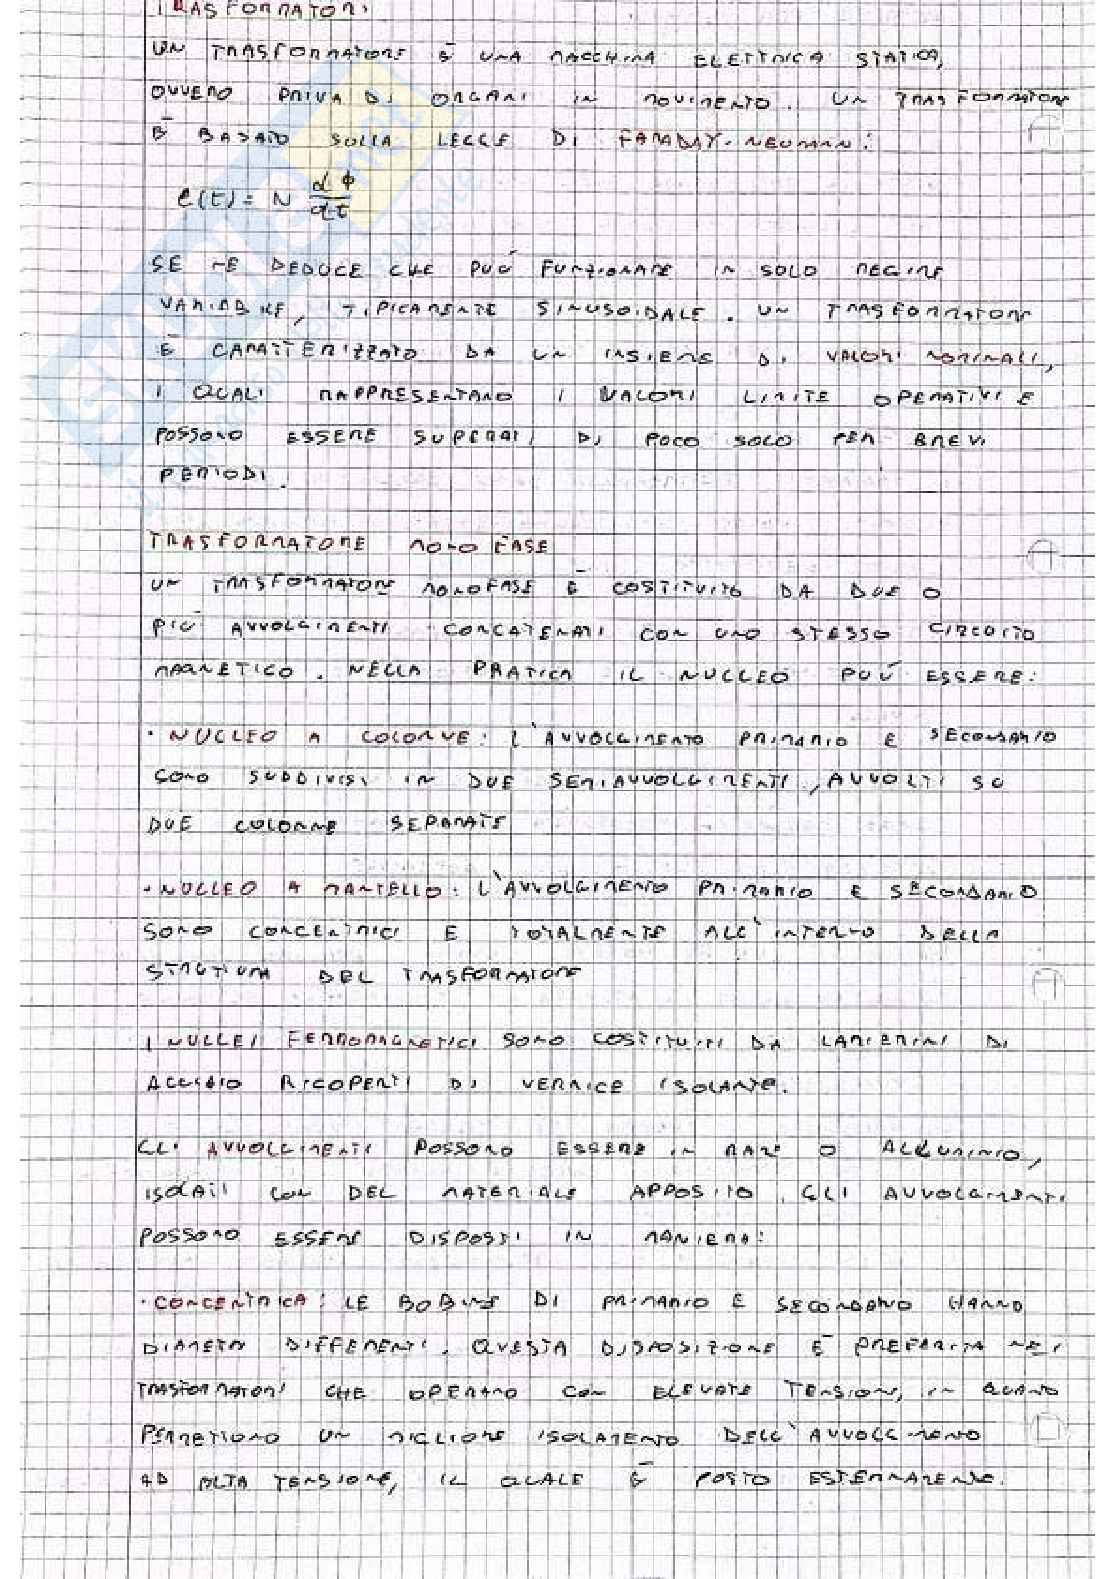 TRASFORMATORI
UN TRASFORMATORE È UNA MACCHINA ELETTRICA STATICA,
OVVERO PRIVA DI ORGANI IN MOVIMENTO. UN TRASFORMATORE
È BASATO SULLA LEGGE DI FARADAY-NEUMAN:
e(t) = N dϕ/dt
SE NE DEDUCE CHE PUÒ FUNZIONARE IN SOLO REGIME
VARIABILE, TIPICAMENTE SINUSOIDALE. UN TRASFORMATORE
È CARATTERIZZATO DA UN INSIEME DI VALORI NOMINALI,
I QUALI RAPPRESENTANO I VALORI LIMITE OPERATIVI E
POSSONO ESSERE SUPERATI DI POCO SOLO PER BREVI
PERIODI.
TRASFORMATORE MONOFASE
UN TRASFORMATORE MONOFASE È COSTITUITO DA DUE O
PIÙ AVVOLGIMENTI CONCATENATI CON UNO STESSO CIRCUITO
MAGNETICO. NELLA PRATICA IL NUCLEO PUÒ ESSERE:
· NUCLEO A COLONNE: L'AVVOLGIMENTO PRIMARIO E SECONDARIO
SONO SUDDIVISI IN DUE SEMIAVVOLGIMENTI, AVVOLTI SU
DUE COLONNE SEPARATE
· NUCLEO A MANTELLO: L'AVVOLGIMENTO PRIMARIO E SECONDARIO
SONO CONCENTRICI E TOTALMENTE ALL'INTERNO DELLA
STRUTTURA DEL TRASFORMATORE
I NUCLEI FERROMAGNETICI SONO COSTITUITI DA LAMIERINI DI
ACCIAIO RICOPERTI DI VERNICE ISOLANTE.
GLI AVVOLGIMENTI POSSONO ESSERE IN RAME O ALLUMINIO,
ISOLATI CON DEL MATERIALE APPOSITO. GLI AVVOLGIMENTI
POSSONO ESSERE DISPOSTI IN MANIERA:
· CONCENTRICA: LE BOBINE DI PRIMARIO E SECONDARIO HANNO
DIAMETRI DIFFERENTI. QUESTA DISPOSIZIONE È PREFERITA NEI
TRASFORMATORI CHE OPERANO CON ELEVATE TENSIONI, IN QUANTO
PERMETTONO UN MIGLIORE ISOLAMENTO DELL'AVVOLGIMENTO
AD ALTA TENSIONE, IL QUALE È POSTO ESTERNAMENTE.